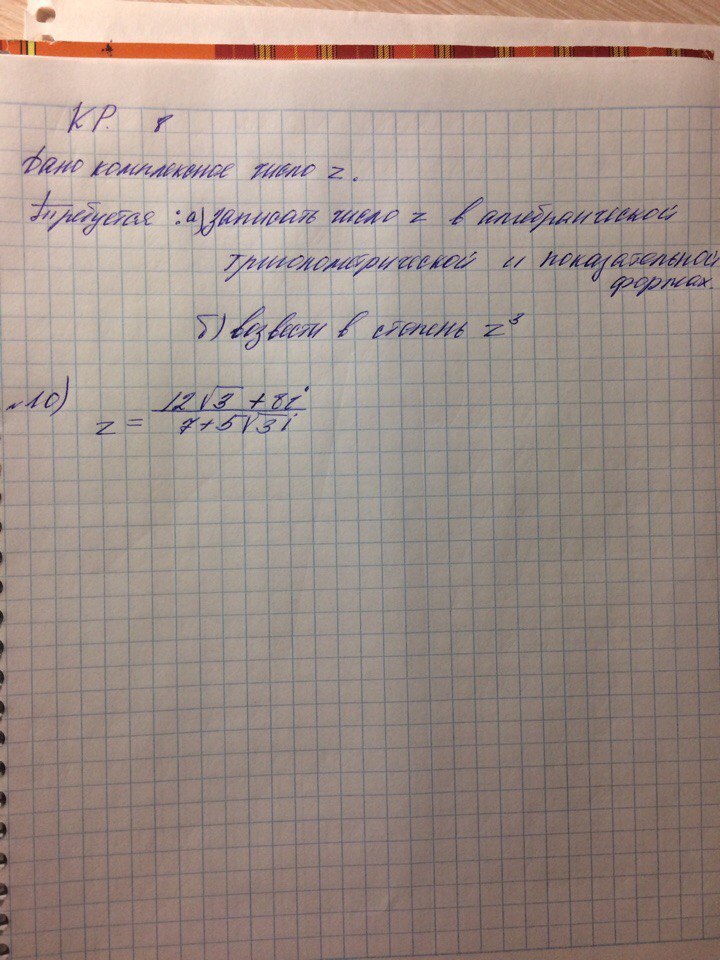 КР. 8
Дано комплексное число z.
Требуется: а) записать число z в алгебраической
тригонометрической и показательной
формах.
б) возвести в степень z³
№10) z = (12√3 + 8i) / (7 + 5√3 i)